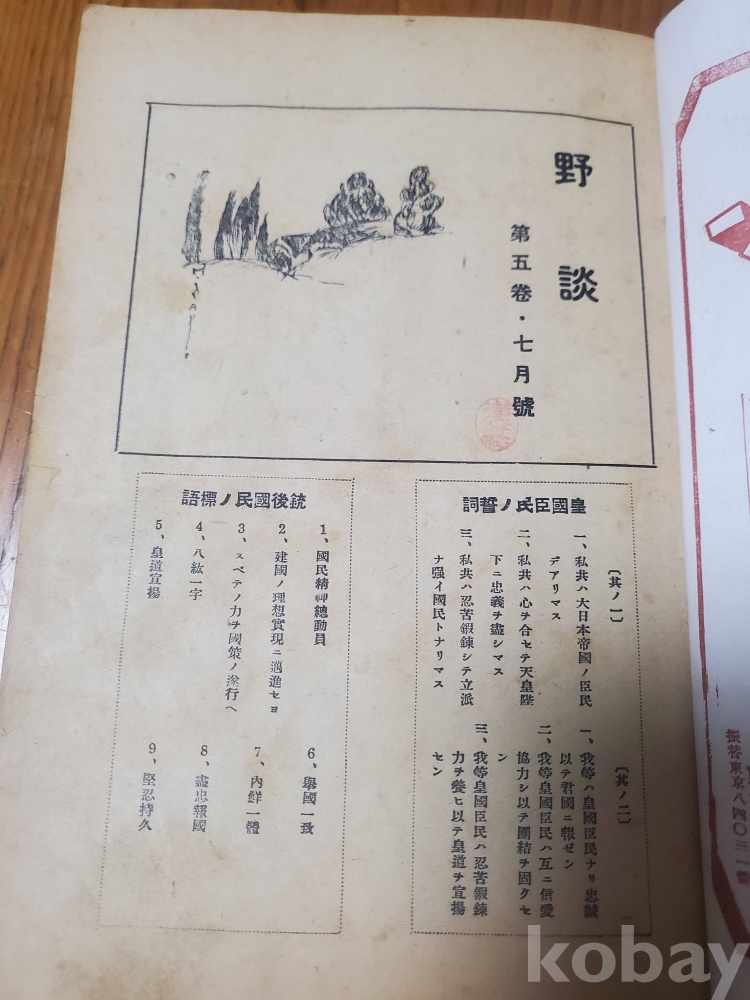 野談
第五卷・七月號
皇國臣民ノ誓詞
〔其ノ一〕
一、私共ハ大日本帝國ノ臣民
デアリマス
二、私共ハ心ヲ合セテ天皇陛
下ニ忠義ヲ盡シマス
三、私共ハ忍苦鍛鍊シテ立派
ナ强イ國民トナリマス
〔其ノ二〕
一、我等ハ皇國臣民ナリ忠誠
以テ君國ニ報ゼン
二、我等皇國臣民ハ互ニ信愛
協力シ以テ團結ヲ固クセ
ン
三、我等皇國臣民ハ忍苦鍛鍊
力ヲ養ヒ以テ皇道ヲ宣揚
セン
銃後國民ノ標語
1、國民精神總動員
2、建國ノ理想實現ニ邁進セヨ
3、スベテノ力ヲ國策ノ遂行ヘ
4、八紘一宇
5、皇道宣揚
6、擧國一致
7、內鮮一體
8、盡忠報國
9、堅忍持久
振替東京八四〇三一番
kobay